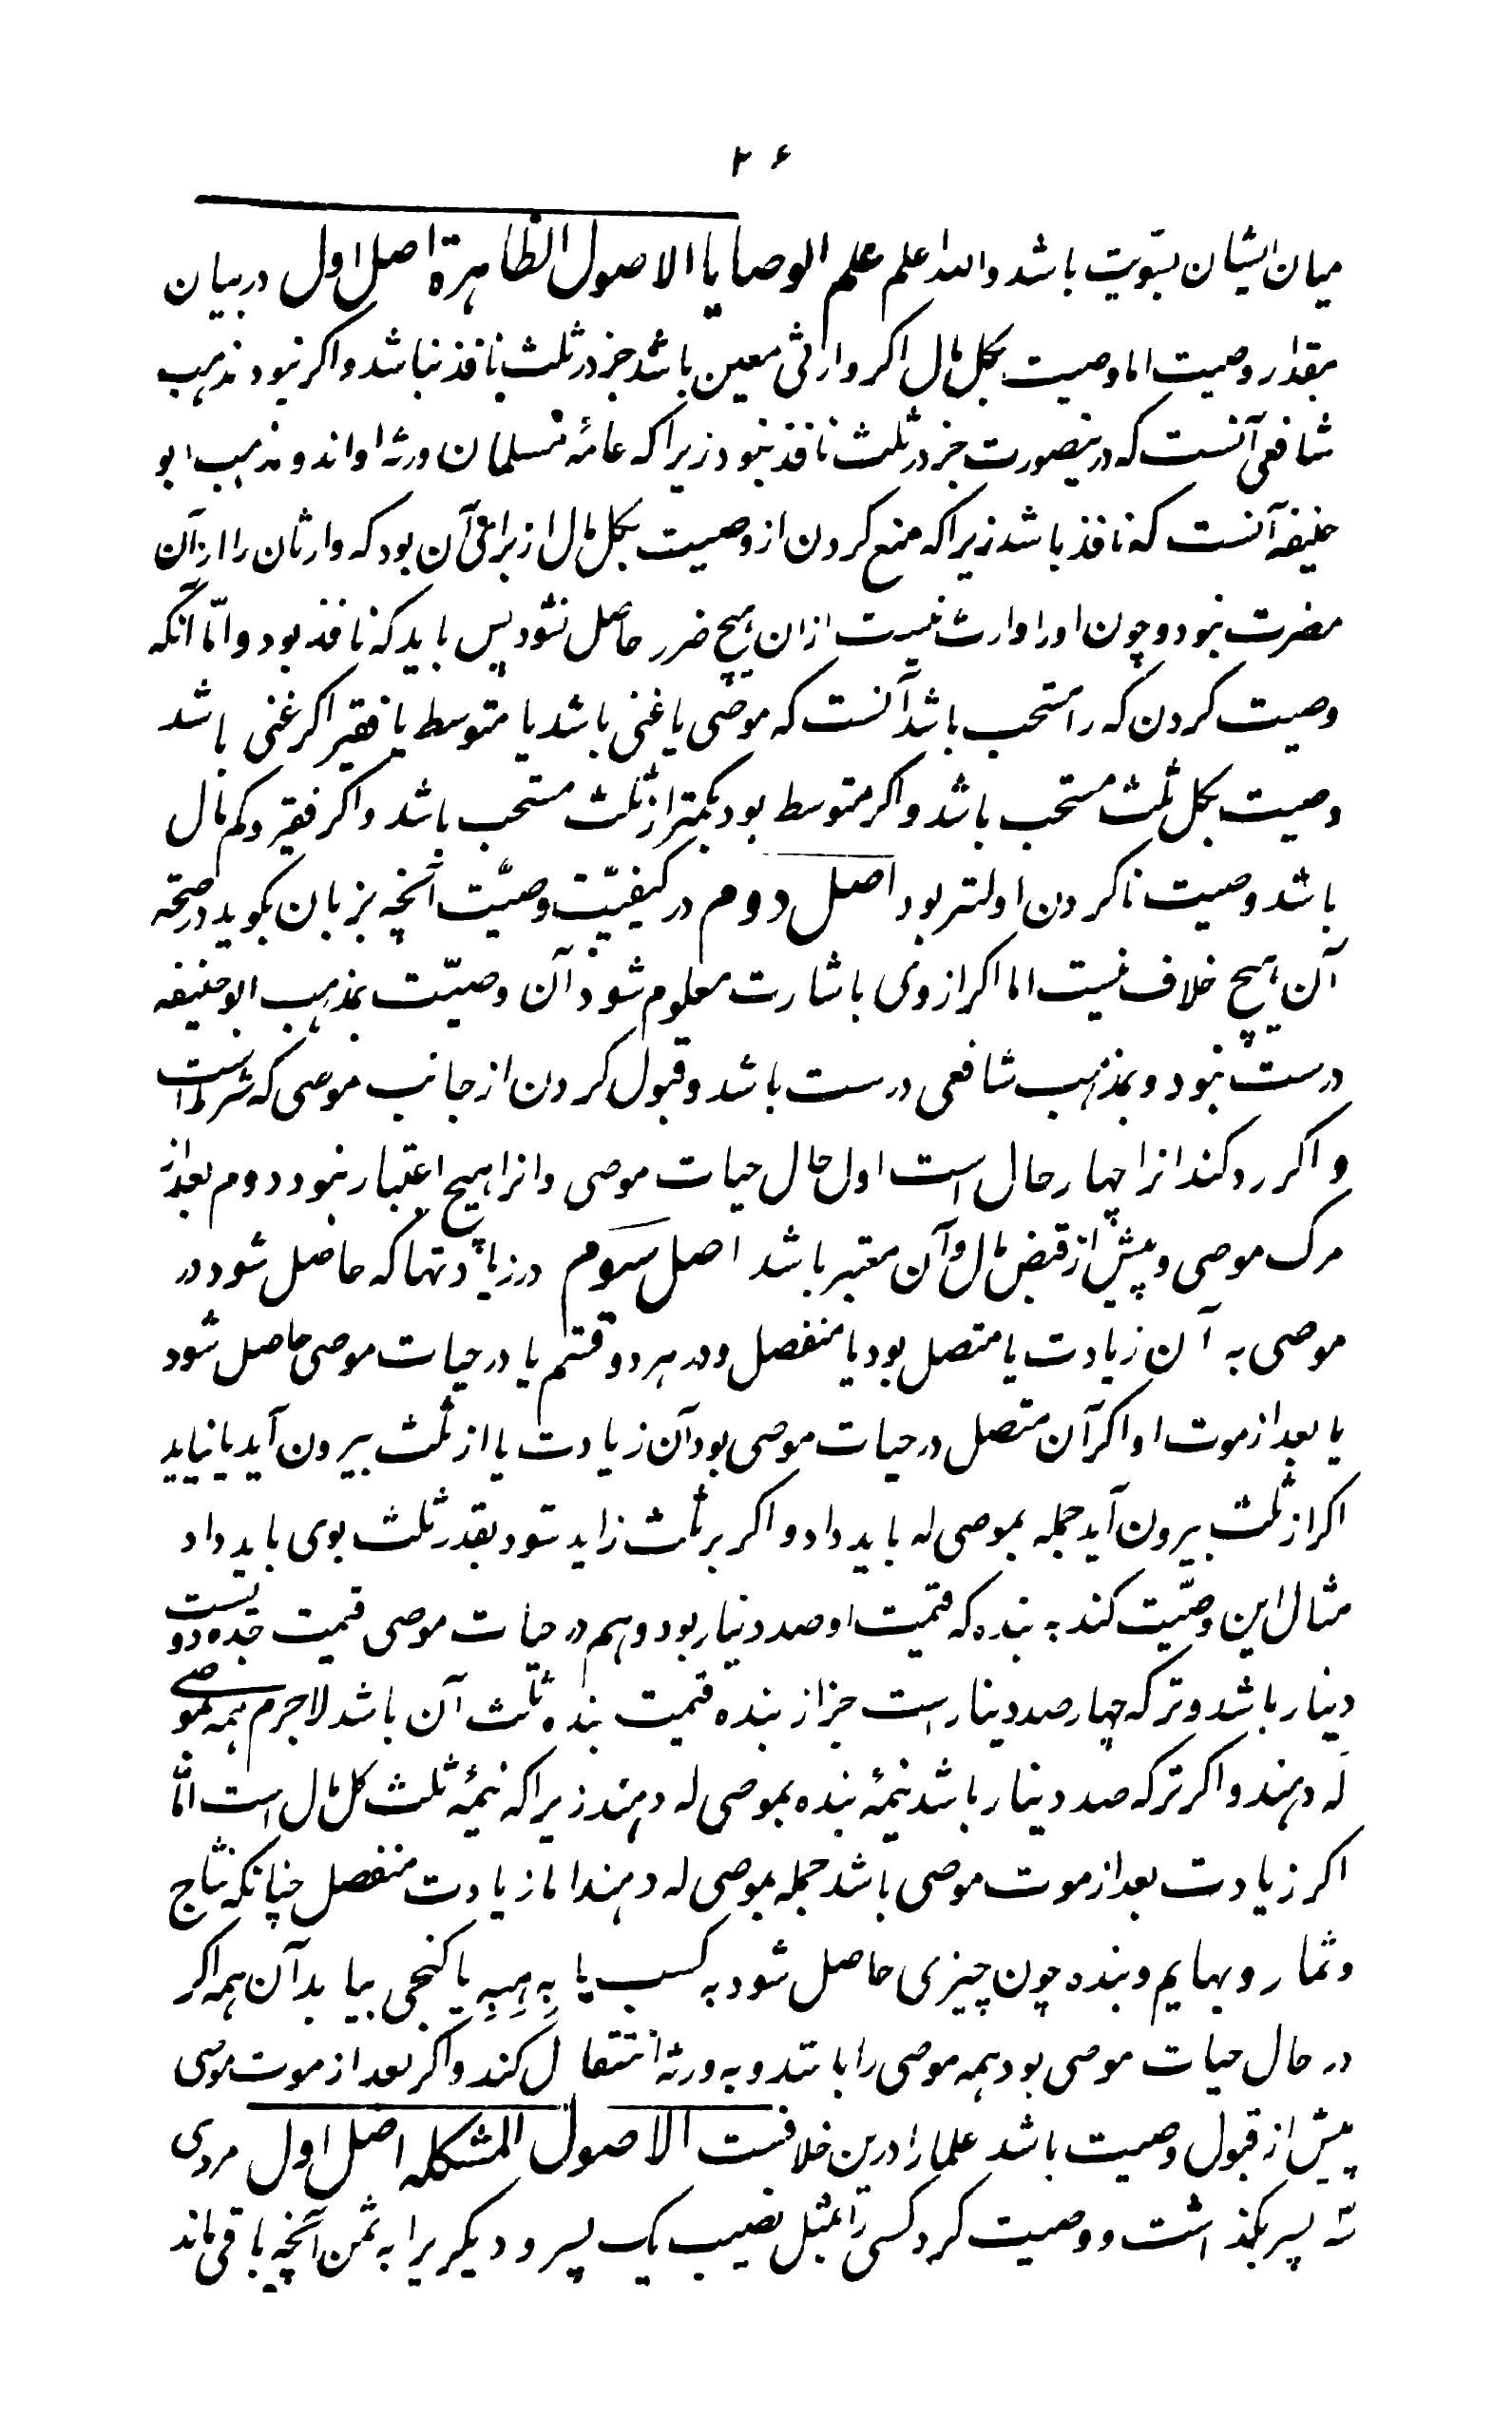 ۲۶
میان ایشان بتویت باشد والله اعلم علم الوصایا الاصول الظاهرة اصل اول در بیان
مقدار وصیت اما وصیت بکل مال اکر وارثی معین باشد جز در ثلث نافذ نباشد واکر نبود مذهب
شافعی آنست که درینصورت جز در ثلث نافذ نبود زیرا که عامهٔ مسلمانان ورثه اواند و مذهب ابو
حنیفه آنست که نافذ باشد زیرا که منع کردن از وصیت بکل مال از برای آن بود که وارثان را ازان
مضرت نبود و چون اورا وارث نیست ازان هیچ ضرر حاصل نشود پس باید که نافذ بود و امّا آنکه
وصیت کردن که را مستحب باشد آنست که موصی یا غنی باشد یا متوسط یا فقیر اکر غنی باشد
وصیت بکل ثلث مستحب باشد و اکر متوسط بود بکمتر از ثلث مستحب باشد و اکر فقیر و کم مال
باشد وصیت ناکردن اولیتر بود اصل دوم در کیفیّت وصیّت آنچه بزبان بکوید در صحّه
آن هیچ خلاف نیست اما اکر از وی باشارت معلوم شود آن وصیّت بمذهب ابو حنیفه
درست نبود و بمذهب شافعی درست باشد و قبول کردن از جانب موصی که شرط است
و اکر رد کند انرا چهار حال است اول حال حیات موصی وانرا هیچ اعتبار نبود دوم بعد از
مرک موصی و پیش از قبض مال و آن معتبر باشد اصل سوم در زیادتها که حاصل شود در
موصی به آن زیادت یا متصل بود یا منفصل و در هر دو قسم یا در حیات موصی حاصل شود
یا بعد از موت او اکر آن متصل در حیات موصی بود آن زیادت یا از ثلث بیرون آید یا نیاید
اکر از ثلث بیرون آید جمله بموصی له باید داد و اکر بر ثلث زاید شود بقدر ثلث بوی باید داد
مثال این وصیّت کند به بنده که قیمت او صد دینار بود و هم در حیات موصی قیمت بنده دویست
دینار باشد و ترکه چهار صد دینار است جز از بنده قیمت بنده ثلث آن باشد لاجرم همه بموصی
له دهند و اکر ترکه صد دینار باشد نیمهٔ بنده بموصی له دهند زیرا که نیمهٔ ثلث کل مال است امّا
اکر زیادت بعد از موت موصی باشد جمله بموصی له دهند اما زیادت منفصل چنانکه نتاج
و ثمار و بهایم و بنده چون چیزی حاصل شود به کسب یا بِه هِبِه یا کنجی بیابد آن همه اکر
در حال حیات موصی بود همه موصی را باشد و به ورثه انتقال کند و اکر بعد از موت موصی
پیش از قبول وصیت باشد علما را درین خلافست الاصول المشکله اصل اول مردی
سه پسر بکذاشت و وصیت کرد کسی را بمثل نصیب یک پسر و دیکریرا به ثمن آنچه باقی ماند